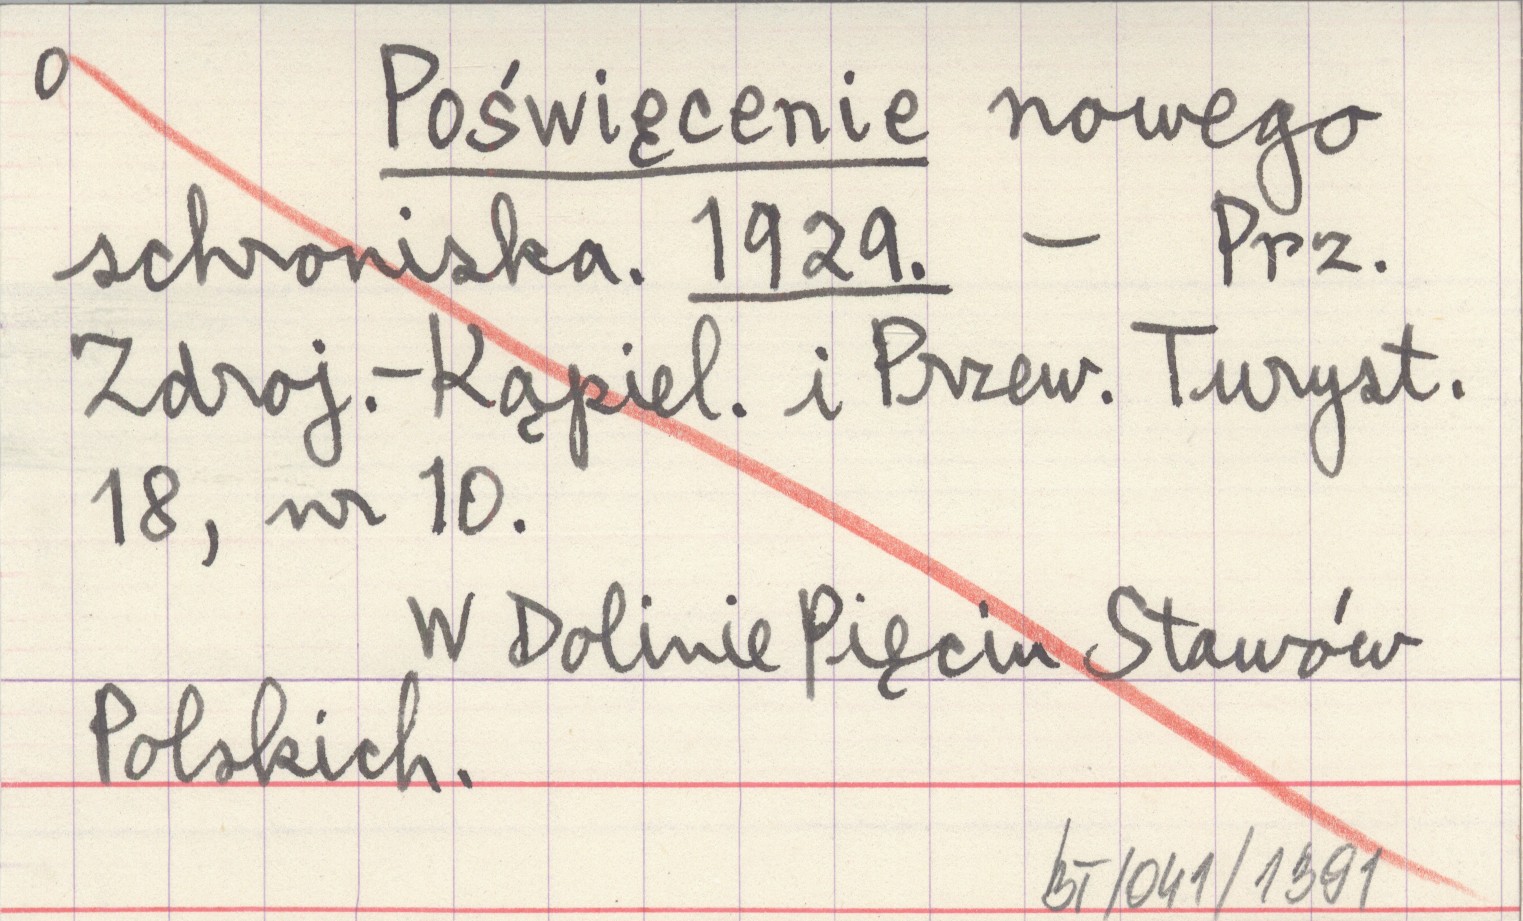 0 Poświęcenie nowego
schroniska. 1929. - Prz.
Zdroj.-Kąpiel. i Przew. Turyst.
18, nr 10.
W Dolinie Pięciu Stawów
Polskich.
BT/041/1391